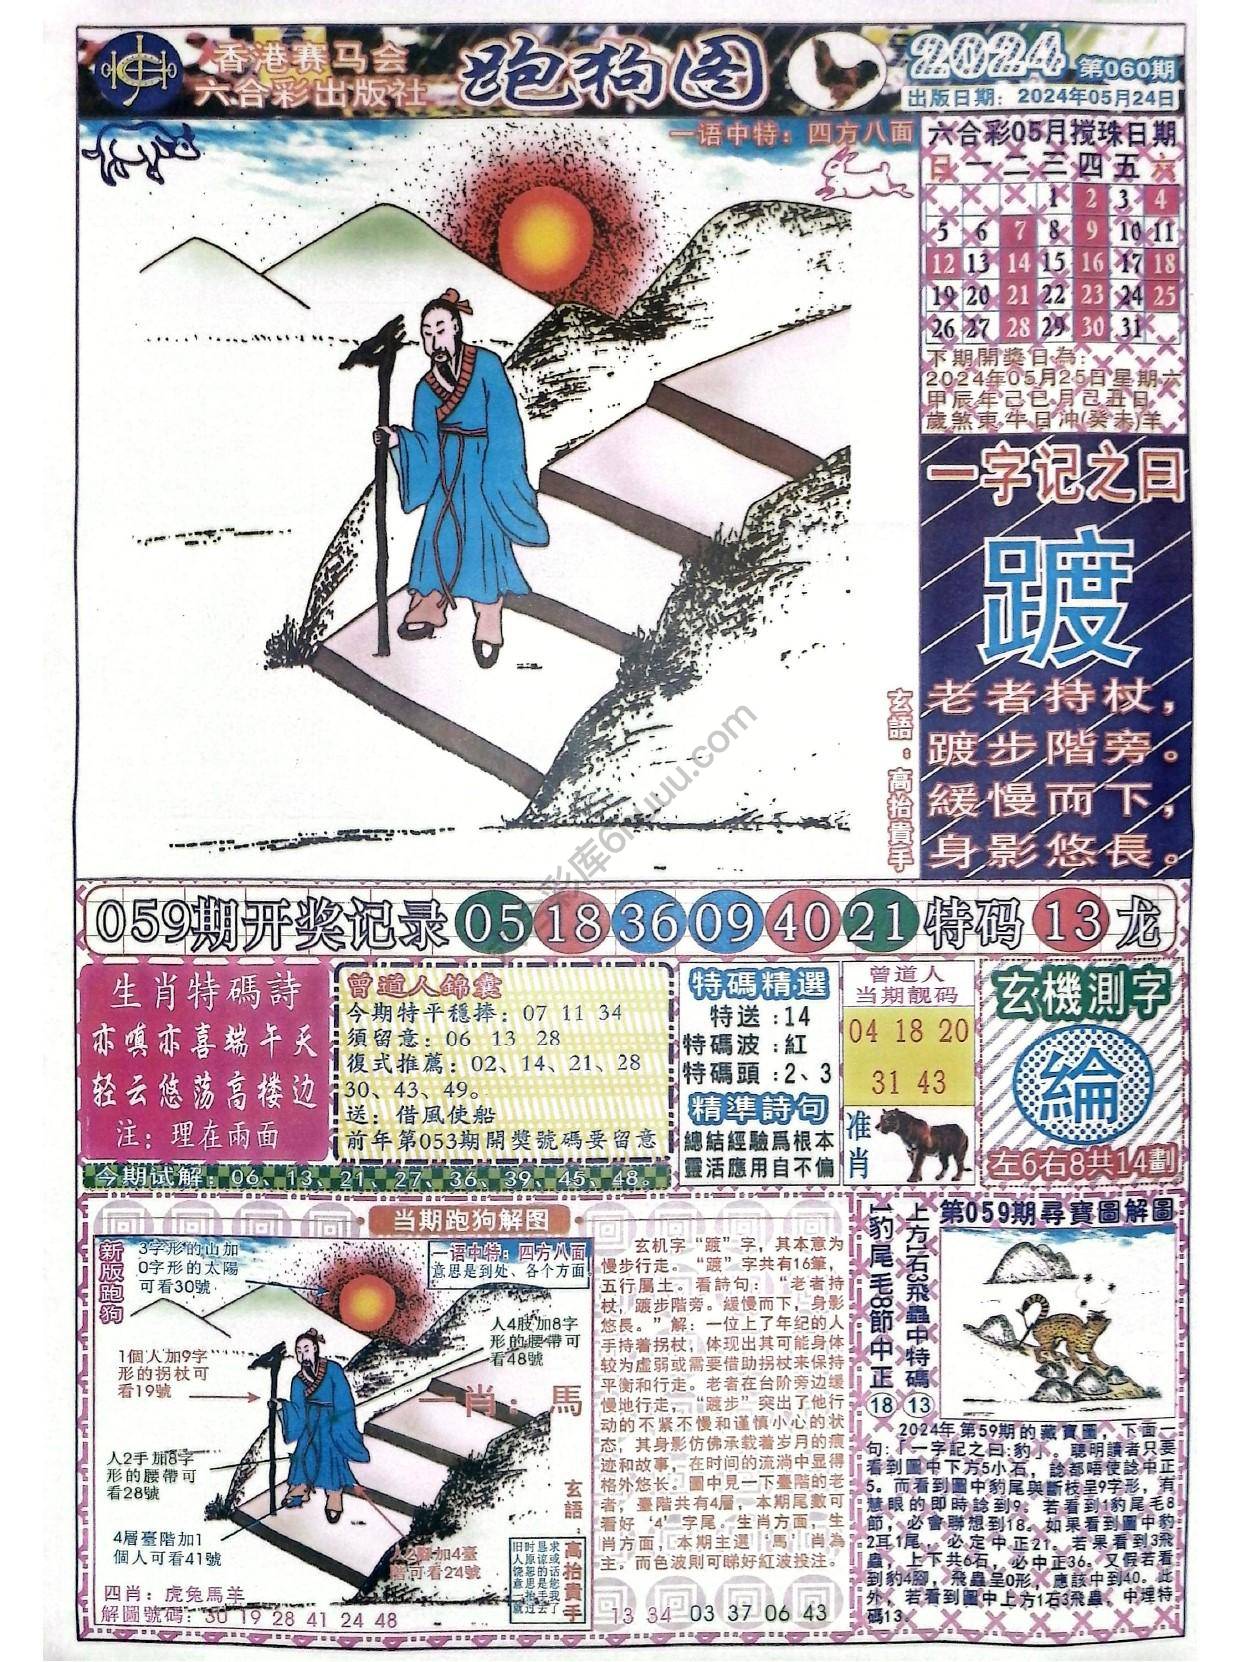 香港赛马会
六合彩出版社
跑狗图
2024
第060期
出版日期：2024年05月24日
一语中特：四方八面
六合彩05月搅珠日期
日一二三四五六
1 2 3 4
5 6 7 8 9 10 11
12 13 14 15 16 17 18
19 20 21 22 23 24 25
26 27 28 29 30 31
下期開獎日為：
2024年05月25日星期六
甲辰年己巳月己丑日
歲煞東牛日沖(癸未)羊
一字记之曰
踱
老者持杖，
踱步階旁。
緩慢而下，
身影悠長。
玄語：高抬貴手
059期开奖记录 05 18 36 09 40 21 特码 13 龙
生肖特碼詩
亦嗔亦喜端午天
轻云悠荡高楼边
注：理在兩面
曾道人錦囊
今期特平穩捧：07 11 34
須留意：06 13 28
復式推薦：02、14、21、28
30、43、49。
送：借風使船
前年第053期開獎號碼要留意
今期试解：06、13、21、27、36、39、45、48。
特碼精選
特送：14
特碼波：紅
特碼頭：2、3
精準詩句
總結經驗爲根本
靈活應用自不偏
曾道人
当期靓码
04 18 20
31 43
准肖
玄機測字
綸
左6右8共14劃
当期跑狗解图
新版跑狗
3字形的山加
0字形的太陽
可看30號
一语中特：四方八面
意思是到处、各个方面
人4肢加8字
形的腰帶可
看48號
1個人加9字
形的拐杖可
看19號
一肖：馬
人2手加8字
形的腰帶可
看28號
4層臺階加1
個人可看41號
加4臺
階可看24號
玄語：
高抬貴手
四肖：虎兔馬羊
解圖號碼：30 19 28 41 24 48
玄机字“踱”字，其本意为
慢步行走。“踱”字共有16筆，
五行屬土。看詩句：“老者持
杖，踱步階旁。緩慢而下，身影
悠長。”解：一位上了年纪的人
手持着拐杖，体现出其可能身体
较为虚弱或需要借助拐杖来保持
平衡和行走。老者在台阶旁边缓
慢地行走，“踱步”突出了他行
动的不紧不慢和谨慎小心的状
态，其身影仿佛承载着岁月的痕
迹和故事，在时间的流淌中显得
格外悠长。圖中見一下臺階的老
者，臺階共有4層，本期尾數可
看好‘4’字尾。生肖方面，生
肖方面，本期主選‘馬’肖為
主。而色波則可睇好紅波投注。
13 34 03 37 06 43
第059期尋寶圖解圖
上方1石3飛蟲中特碼13
1豹尾毛8節中正18
2024年第59期的藏寶圖，下面一
句：「一字記之曰：豹」。聰明讀者只要
看到圖中下方5小石，諗都唔使諗中正
5。而看到圖中豹尾與斷枝呈9字形，有
慧眼的即時諗到9。若看到1豹尾毛8
節，必會聯想到18。如果看到圖中豹
2耳1尾，必定中正21。若果看到3飛
蟲，上下共6石，必中正36。又假若看
到豹4腳，飛蟲呈0形，應該中到40。此
外，若看到圖中上方1石3飛蟲，中埋特
碼13。